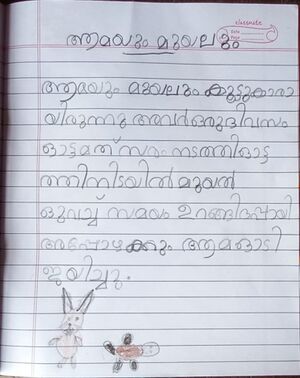 classmate
Date
Page
ആമയും മുയലും
ആമയും മുയലും കൂട്ടുകാരാ
യിരുന്നു അവർ ഒരു ദിവസം
ഓട്ടമത്സരം നടത്തി ഓട്ട
ത്തിനിടയിൽ മുയൽ
സമയം ഉറങ്ങിപ്പോയി
അപ്പോഴക്കും ആമ ഓടി
ജയിച്ചു.